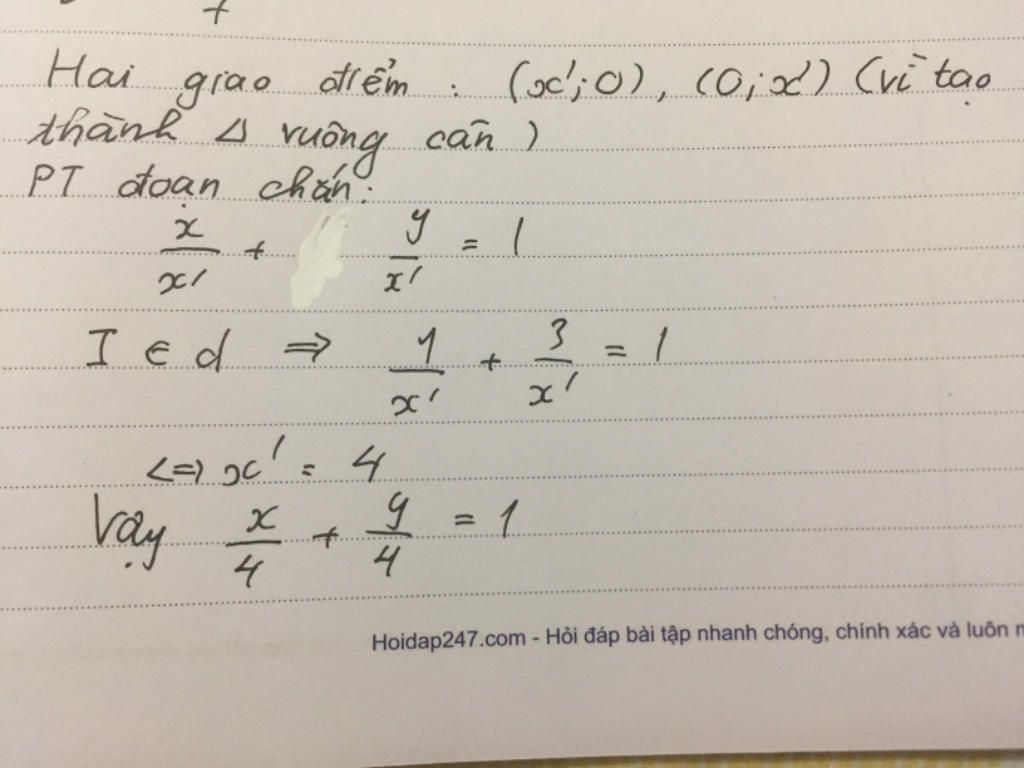 Hai giao điểm : (x';0), (0;x') (vì tạo
thành Δ vuông cân )
PT đoạn chắn:
x/x' + y/x' = 1
I ∈ d ⇒ 1/x' + 3/x' = 1
<=> x' = 4
Vậy x/4 + y/4 = 1
Hoidap247.com - Hỏi đáp bài tập nhanh chóng, chính xác và luôn